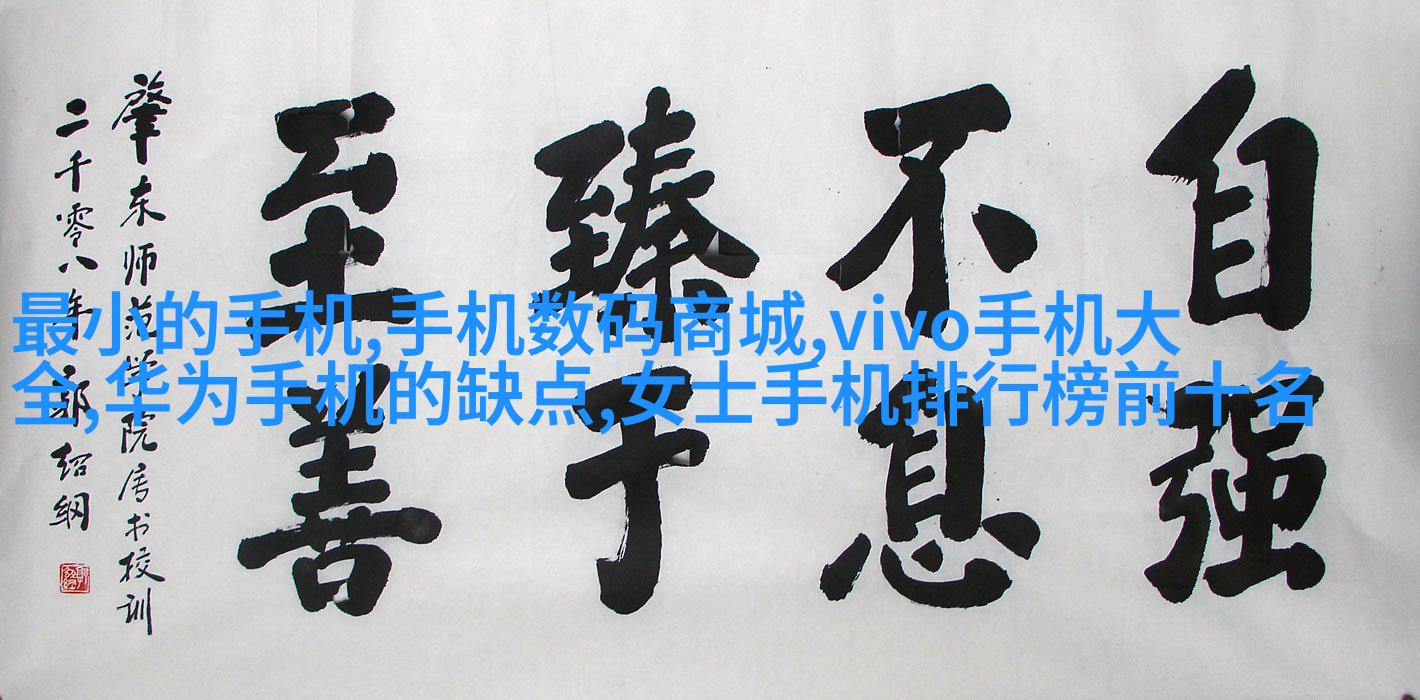 自强
不息
臻于
至善
肇东师范学院属书校训
二千零八年 郭绍纲
最小的手机,手机数码商城,vivo手机大
全,华为手机的缺点,女士手机排行榜前十名